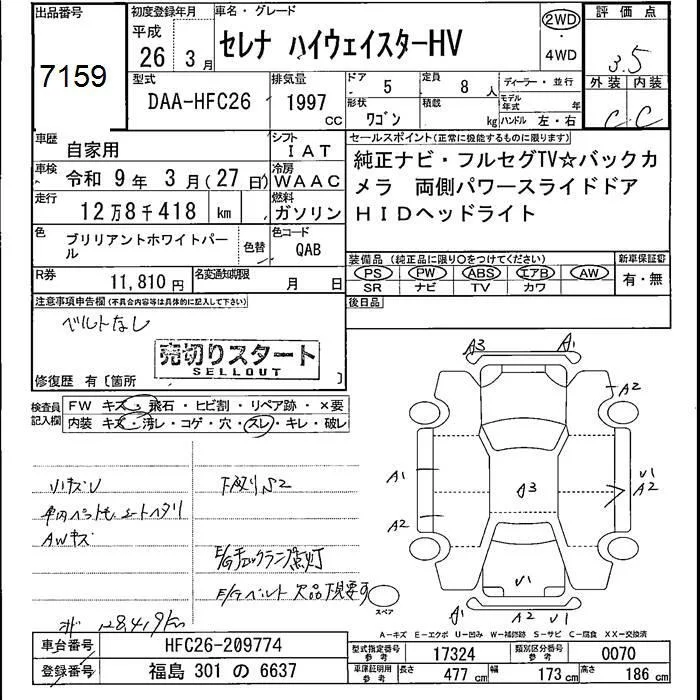 出品番号
7159
初度登録年月
平成
26 3 月
車名・グレード
セレナ ハイウェイスターHV
2WD
・
4WD
評価点
3.5
外装 内装
C C
型式
DAA-HFC26
排気量
1997
CC
ドア 5
定員 8 人
形状 ワゴン
積載 kg
ディーラー・並行
モデル年式 年
ハンドル 左・右
車歴 自家用
シフト IAT
車検 令和 9 年 3 月 (27 日)
冷房 WAAC
走行 12 万 8 千 418 km
燃料 ガソリン
色 ブリリアントホワイトパール
色替
色コード QAB
R券 11,810 円
名変通知期限 月 日
セールスポイント(正常に機能するものに限ります)
純正ナビ・フルセグTV☆バックカ
メラ 両側パワースライドドア
HIDヘッドライト
装備品 (純正品に限り○をつけてください)
PS PW ABS エアB AW
SR ナビ TV カワ
新車保証書
有・無
後日品
注意事項申告欄(不具合内容等は具体的に記入して下さい)
ベルトなし
売切りスタート
SELLOUT
修復歴 有〔箇所 〕
検査員
記入欄
FW キズ・飛石・ヒビ割・リペア跡・×要
内装 キズ・汚レ・コゲ・穴・スレ・キレ・破レ
小キズU
AWキズ
下廻りS2
E/Gチェックランプ点灯
E/Gベルト 欠品下見要す
128419km
A3 A1
A2
A1
A2
A3
U1
A2
U1
A1 A2
スペア
A−キズ E−エクボ U−凹み W−補修跡 S−サビ C−腐食 XX−交換済
車台番号 HFC26-209774
登録番号 福島 301 の 6637
型式指定番号
参考
17324
類別区分番号
参考
0070
車検証明用
参考
長さ 477 cm 幅 173 cm 高さ 186 cm